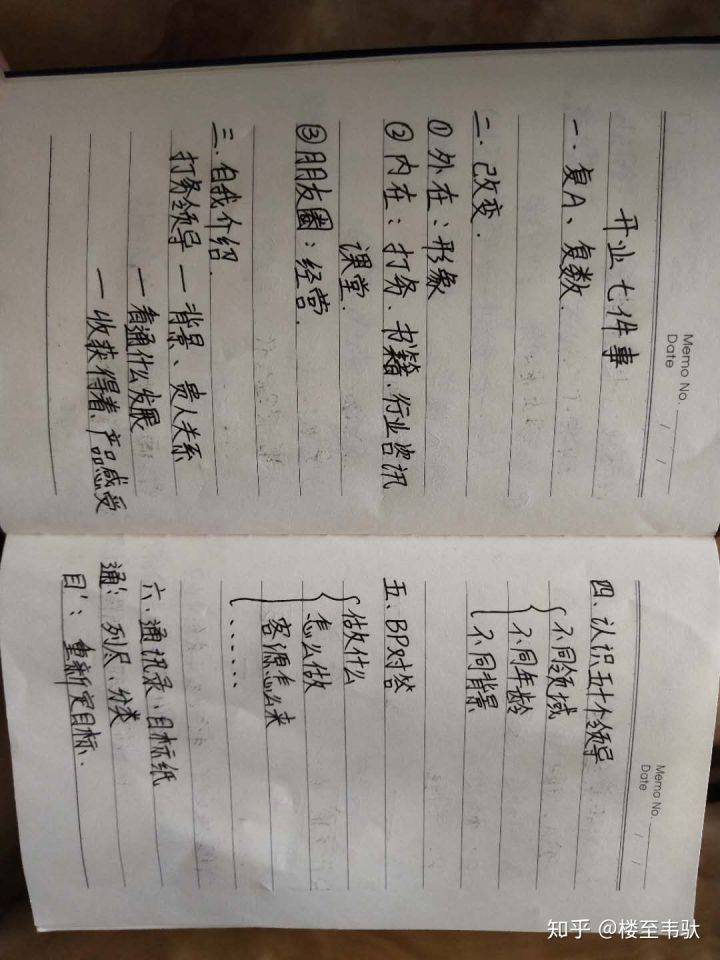 Memo No.
Date / /
开业七件事
一.复A、复数
二.改变.
①外在:形象
②内在:打务、书籍、行业咨讯
课堂.
③朋友圈:经营.
三.自我介绍.
打务领导—背景、贵人关系
—看通什么发展
—收获得着、产品感受
Memo No.
Date / /
四、认识五十个领导
不同领域
不同年龄
不同背景
五、BP对答
做什么
怎么做
客源怎么来
......
六、通讯录、目标纸
通:列尽、分类
目:重新定目标.
知乎 @楼至韦驮